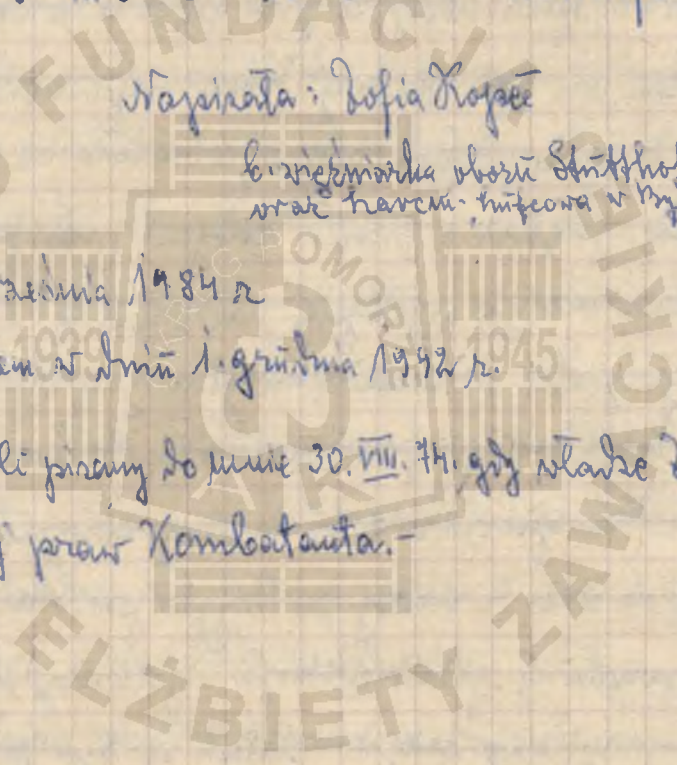 Napisała: Zofia Kopeć
b. więźniarka obozu Stutthof
oraz harcm. hufcowa w By
ześnia 1984 r
em w dniu 1. grudnia 1942 r.
li pisany do mnie 30. VIII. 74. gdy władze
praw Kombatanta.-
FUNDACJA
OKRĘG POMORZE
1939 1945
AK
ELŻBIETY ZAWACKIEJ